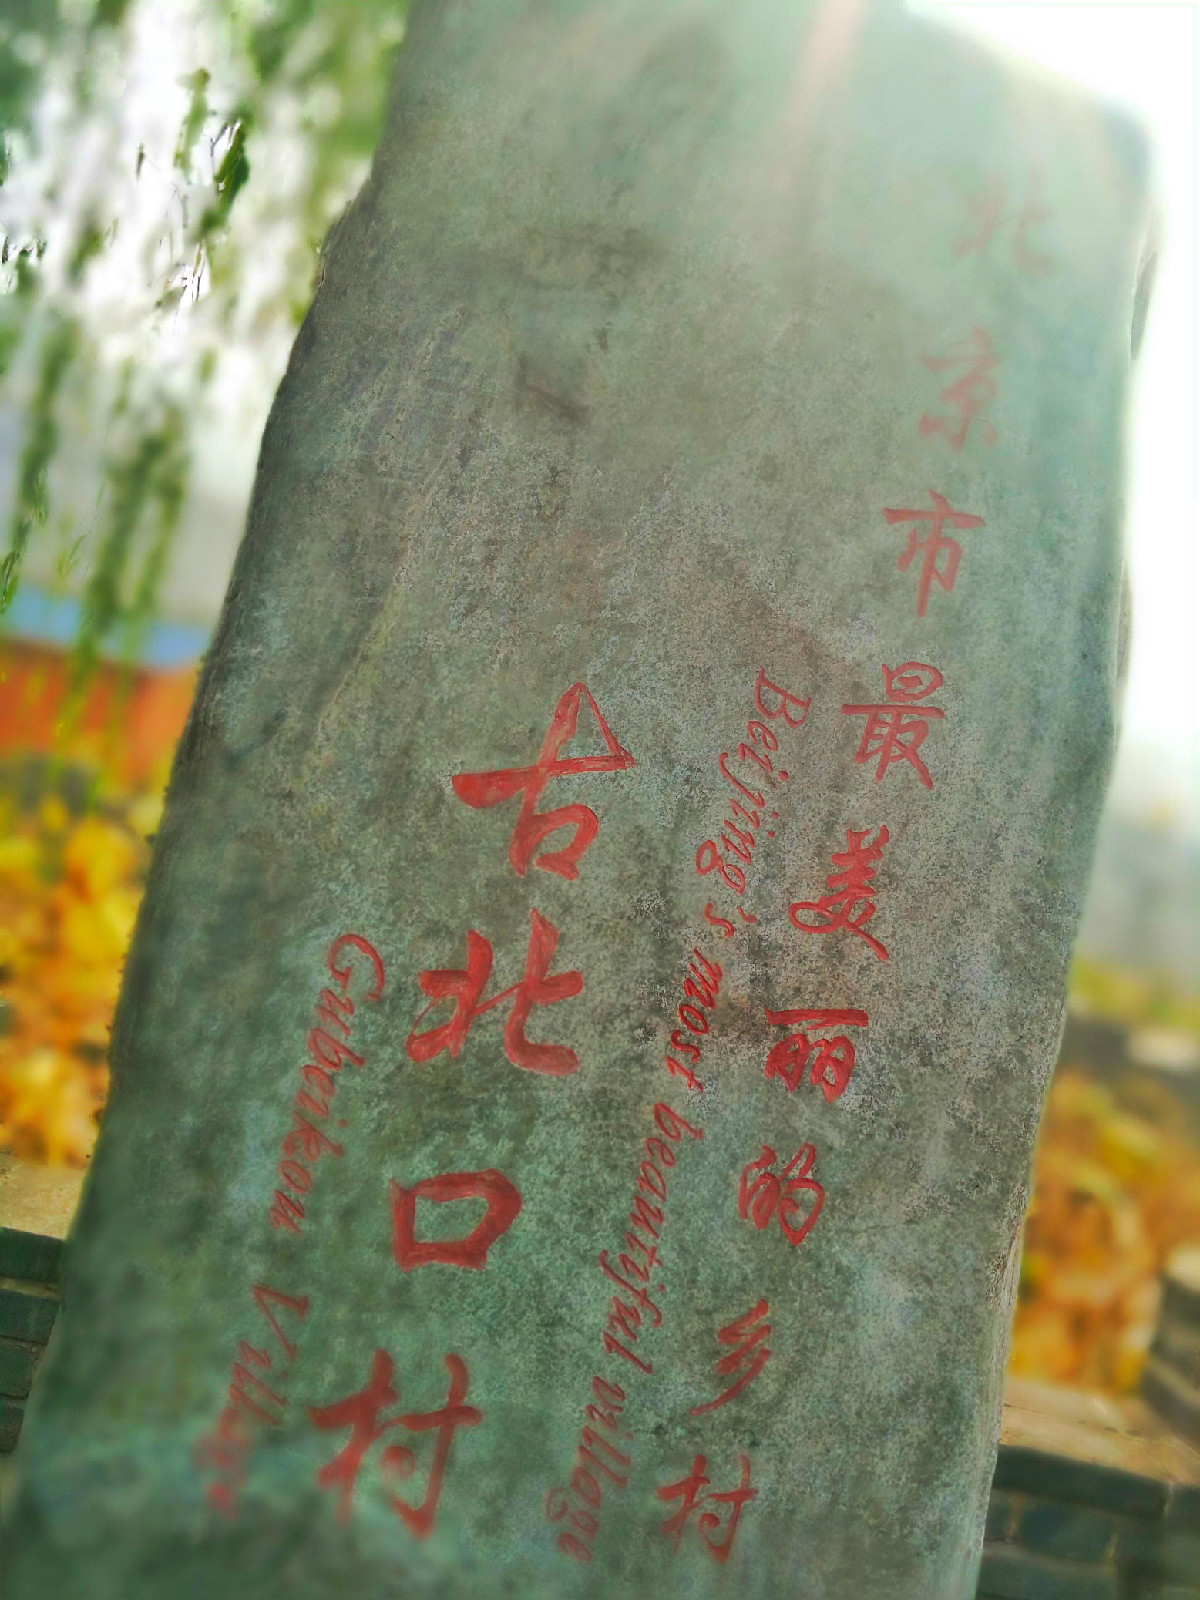 北京市最美丽的乡村
Beijing's most beautiful village
古北口村
Gubeikou Village